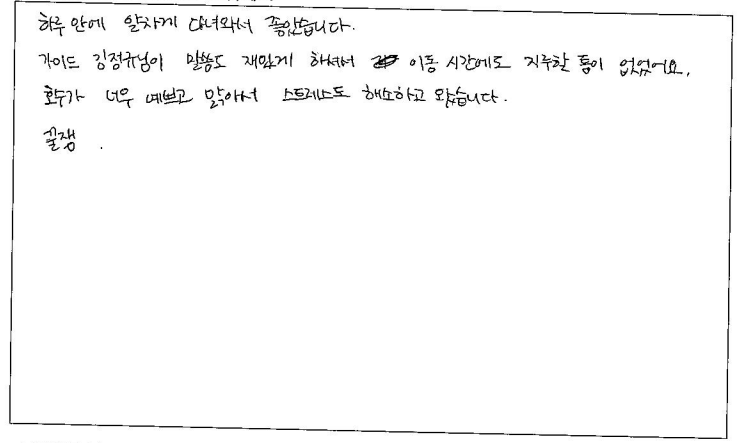 하루 안에 알차게 다녀와서 좋았습니다.
가이드 김정규님이 말씀도 재밌게 하셔서 이동 시간에도 지루할 틈이 없었어요.
호수가 너무 예쁘고 맑아서 스트레스도 해소하고 왔습니다.
꿀잼.